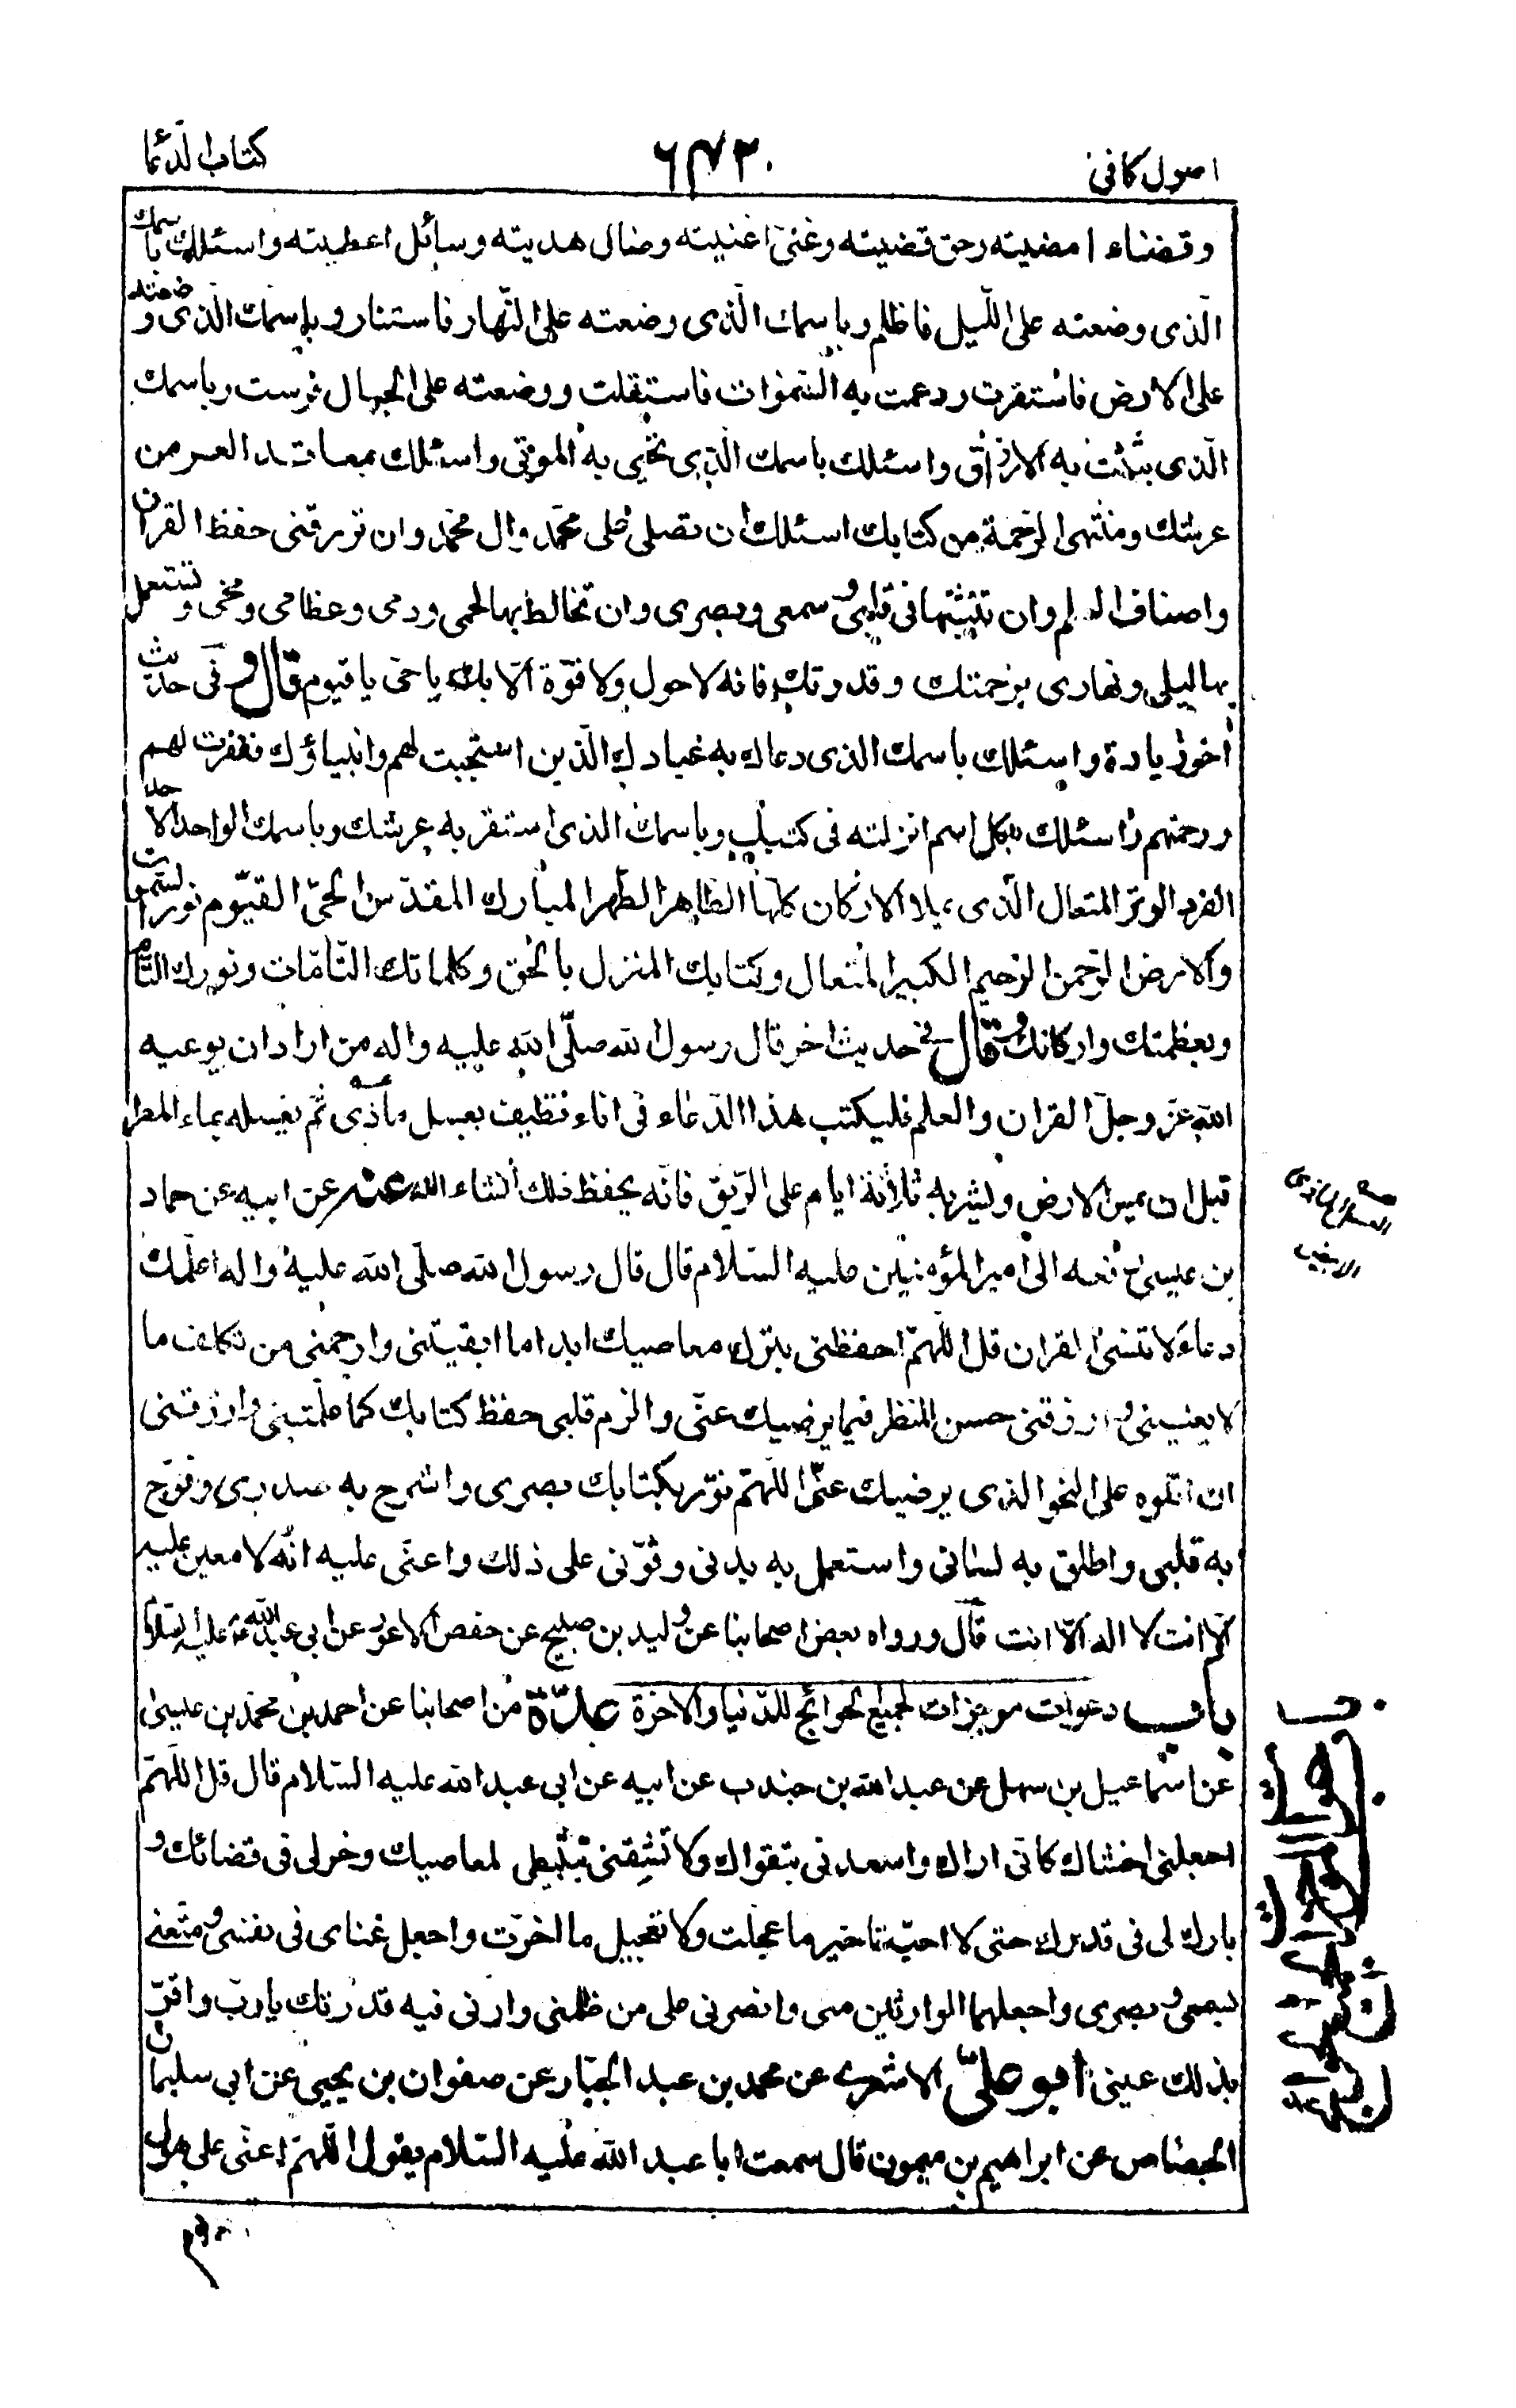 اصول كافى
كتاب الدعا
وقضاء امضيته وحق قضيته وغنى اغنيته وضال هديته وسائل اعطيته واسئلك باسمك
الّذى وضعته على اللّيل فاظلم وباسمك الّذى وضعته على النّهار فاستنار وباسمك الذى وضعته
على الارض فاستقرت ودعمت به السّموات فاستقلت ووضعته على الجبال فرست وباسمك
الّذى بثثت به الارزاق واسئلك باسمك الّذى تحيى به الموتى واسئلك بمعاقد العز من
عرشك ومنتهى الرّحمة من كتابك اسئلك ان تصلى على محمّد وال محمّد وان ترزقنى حفظ القران
واصناف العلم وان تثبّتها فى قلبى وسمعى وبصرى وان تخالط بها لحمى ودمى وعظامى ومخى وتستعمل
بها ليلى ونهارى برحمتك وقدرتك فانه لا حول ولا قوّة الّا بك يا حى يا قيوم قال وفى حديث
اخر زيادة واسئلك باسمك الذى دعاك به عبادك الّذين استجبت لهم وانبياؤك فغفرت لهم
ورحمتهم واسئلك بكل اسم انزلته فى كتبك وباسمك الذى استقر به عرشك وباسمك الواحد الاحد
الفرد الوتر المتعال الّذى يملا الاركان كلّها الطّاهر الطّهر المبارك المقدّس الحىّ القيّوم نور السّموات
والارض الرّحمن الرّحيم الكبير المتعال وكتابك المنزل بالحق وكلماتك التّامّات ونورك التّام
وبعظمتك واركانك وقال فى حديث اخر قال رسول الله صلّى الله عليه واله من اراد ان يوعيه
الله عزّ وجلّ القران والعلم فليكتب هذا الدّعاء فى اناء نظيف بعسل ماذى ثمّ يغسله بماء المطر
قبل ان يمس الارض ويشربه ثلاثة ايام على الرّيق فانّه يحفظ ذلك انشاء الله عنه عن ابيه عن حماد
بن عيسى رفعه الى امير المؤمنين عليه السّلام قال قال رسول الله صلّى الله عليه واله اعلّمك
دعاء لا تنسى القران قل اللّهمّ احفظنى بترك معاصيك ابدا ما ابقيتنى وارحمنى من تكلف ما
لا يعنينى وارزقنى حسن المنظر فيما يرضيك عنّى والزم قلبى حفظ كتابك كما علّمتنى وارزقنى
ان اتلوه على النحو الذى يرضيك عنّى اللّهمّ نوّر بكتابك بصرى واشرح به صدرى وفرّح
به قلبى واطلق به لسانى واستعمل به بدنى وقوّنى على ذلك واعنّى عليه انّه لا معين عليه
الّا انت لا اله الّا انت قال ورواه بعض اصحابنا عن وليد بن صبيح عن حفص الاعور عن ابى عبد الله عليه السّلام
باب دعوات موجزات لجميع الحوائج للدّنيا والاخرة عدّة من اصحابنا عن احمد بن محمّد بن عيسى
عن اسماعيل بن سهل عن عبد الله بن جندب عن ابيه عن ابى عبد الله عليه السّلام قال قل اللّهمّ
اجعلنى اخشاك كانّى اراك واسعدنى بتقواك ولا تشقنى بنشطى لمعاصيك وخر لى فى قضائك و
بارك لى فى قدرك حتى لا احبّ تاخير ما عجّلت ولا تعجيل ما اخّرت واجعل غناى فى نفسى ومتّعنى
بسمعى وبصرى واجعلهما الوارثين منى وانصرنى على من ظلمنى وارنى فيه قدرتك يا ربّ واقرّ
بذلك عينى ابو علىّ الاشعرى عن محمد بن عبد الجبّار عن صفوان بن يحيى عن ابى سليمان
الجصّاص عن ابراهيم بن ميمون قال سمعت ابا عبد الله عليه السّلام يقول اللّهمّ اعنّى على هول